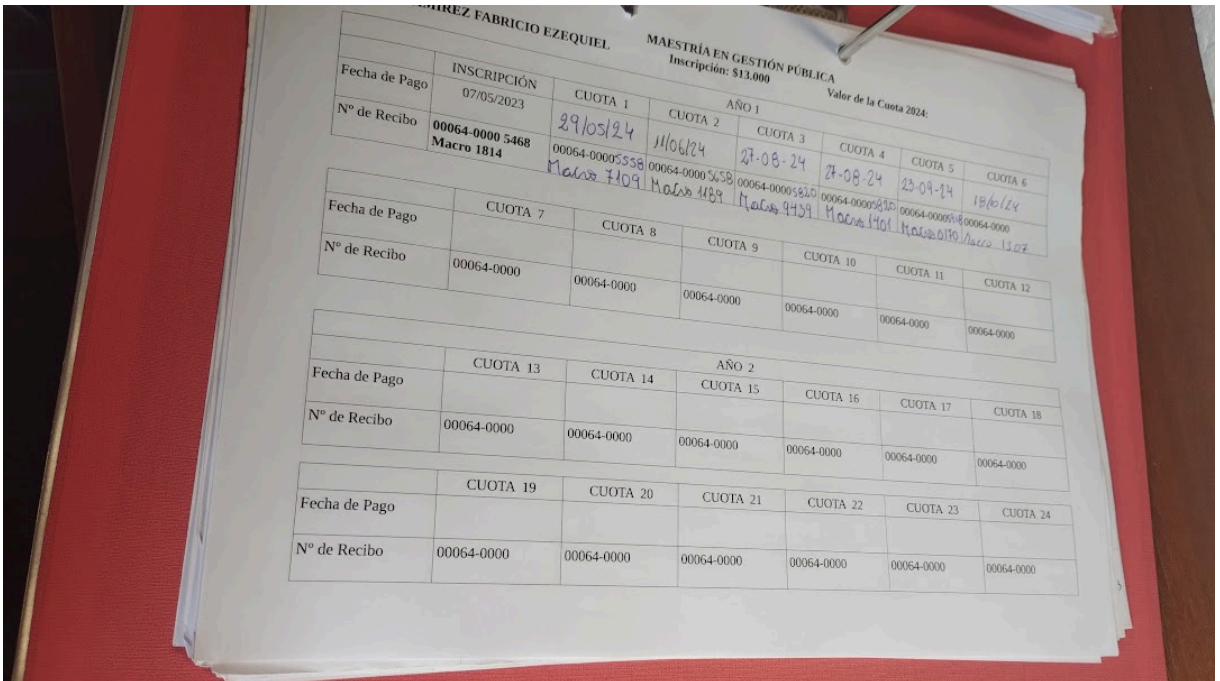 FABRICIO EZEQUIEL
MAESTRÍA EN GESTIÓN PÚBLICA
Inscripción: $13.000
Valor de la Cuota 2024:
AÑO 1
INSCRIPCIÓN CUOTA 1 CUOTA 2 CUOTA 3 CUOTA 4 CUOTA 5 CUOTA 6
Fecha de Pago 07/05/2023 29/05/24 11/06/24 27-08-24 27-08-24 23-09-24 18/10/24
Nº de Recibo 00064-0000 5468 00064-00005558 00064-0000 5658 00064-00005820 00064-00005820 00064-0000 00064-0000
Macro 1814 Macro 7109 Macro 1189 Macro 9439 Macro 1401 Macro 0170 Macro 1307
CUOTA 7 CUOTA 8 CUOTA 9 CUOTA 10 CUOTA 11 CUOTA 12
Fecha de Pago
Nº de Recibo 00064-0000 00064-0000 00064-0000 00064-0000 00064-0000 00064-0000
AÑO 2
CUOTA 13 CUOTA 14 CUOTA 15 CUOTA 16 CUOTA 17 CUOTA 18
Fecha de Pago
Nº de Recibo 00064-0000 00064-0000 00064-0000 00064-0000 00064-0000 00064-0000
CUOTA 19 CUOTA 20 CUOTA 21 CUOTA 22 CUOTA 23 CUOTA 24
Fecha de Pago
Nº de Recibo 00064-0000 00064-0000 00064-0000 00064-0000 00064-0000 00064-0000